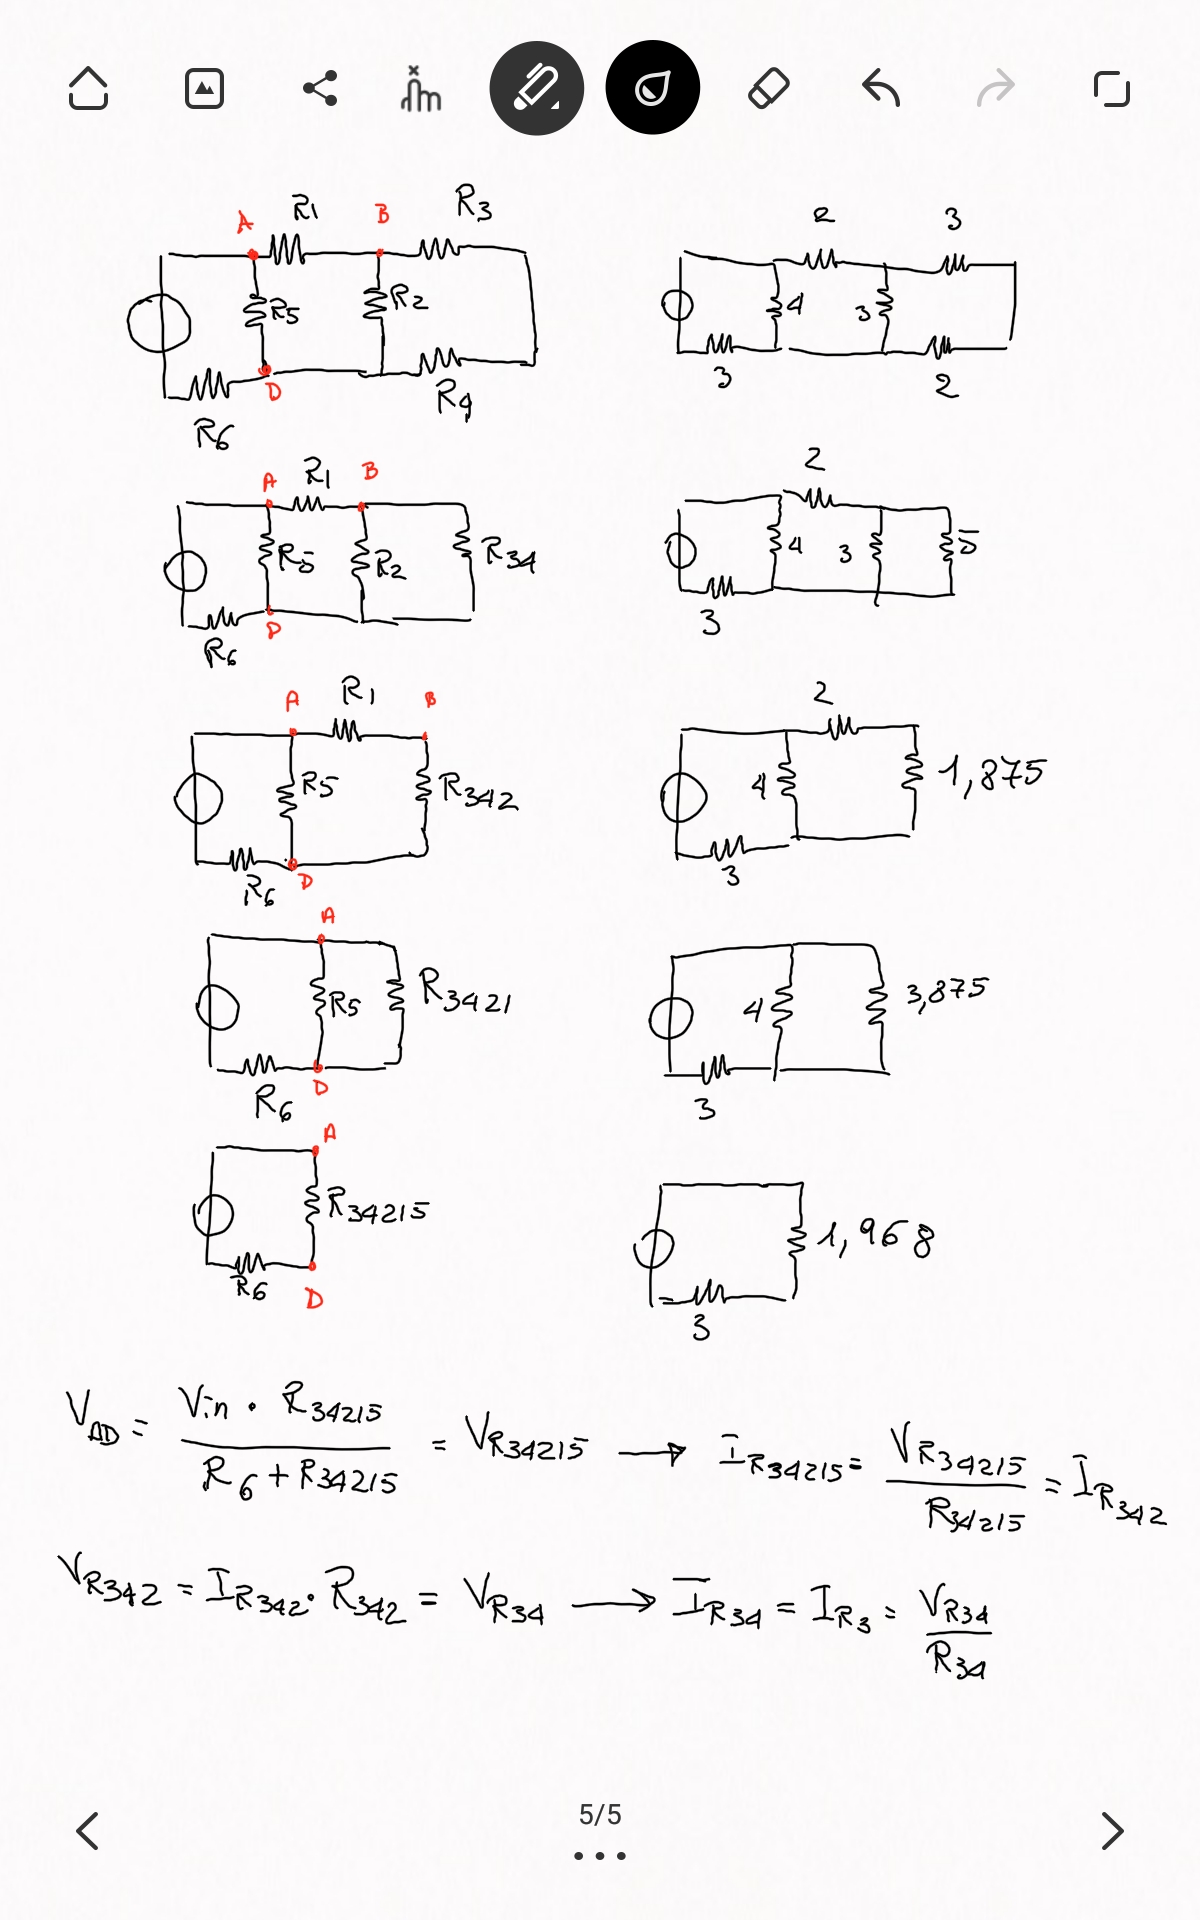 A R1 B R3
R5 R2
D
R6 R4
2 3
4 3
3 2
A R1 B
R5 R2 R34
D
R6
2
4 3 5
3
A R1 B
R5 R342
R6 D
2
4 1,875
3
A
R5 R3421
D
R6
4 3,875
3
A
R34215
R6
D
1,968
3
VAD = Vin · R34215 / R6 + R34215 = VR34215 → IR34215 = VR34215 / R34215 = IR342
VR342 = IR342 · R342 = VR34 → IR34 = IR3 = VR34 / R34
5/5